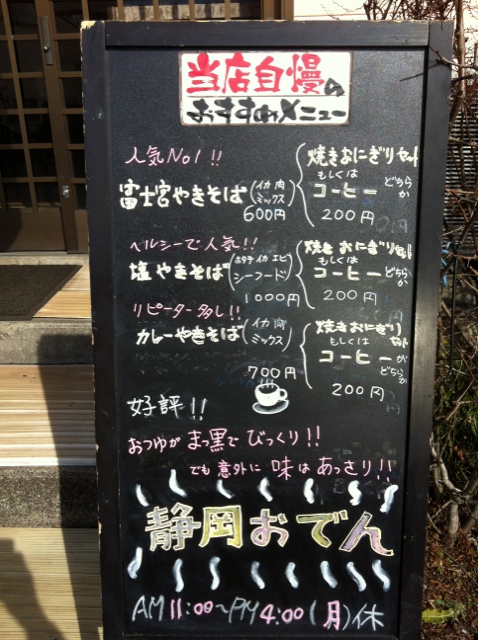 当店自慢の
おすすめメニュー
人気No1!!
富士宮やきそば(イカ肉ミックス)
600円
焼きおにぎりセット
もしくは
コーヒー どちらか
200円
ヘルシーで人気!!
塩やきそば(ホタテイカエビ シーフード)
1000円
焼きおにぎりセット
もしくは
コーヒー どちらか
200円
リピーター多し!!
カレーやきそば(イカ肉ミックス)
700円
焼きおにぎりセット
もしくは
コーヒーが どちらか
200円
好評!!
おつゆがまっ黒でびっくり!!
でも意外に味はあっさり!!
静岡おでん
AM11:00~PM4:00(月)休